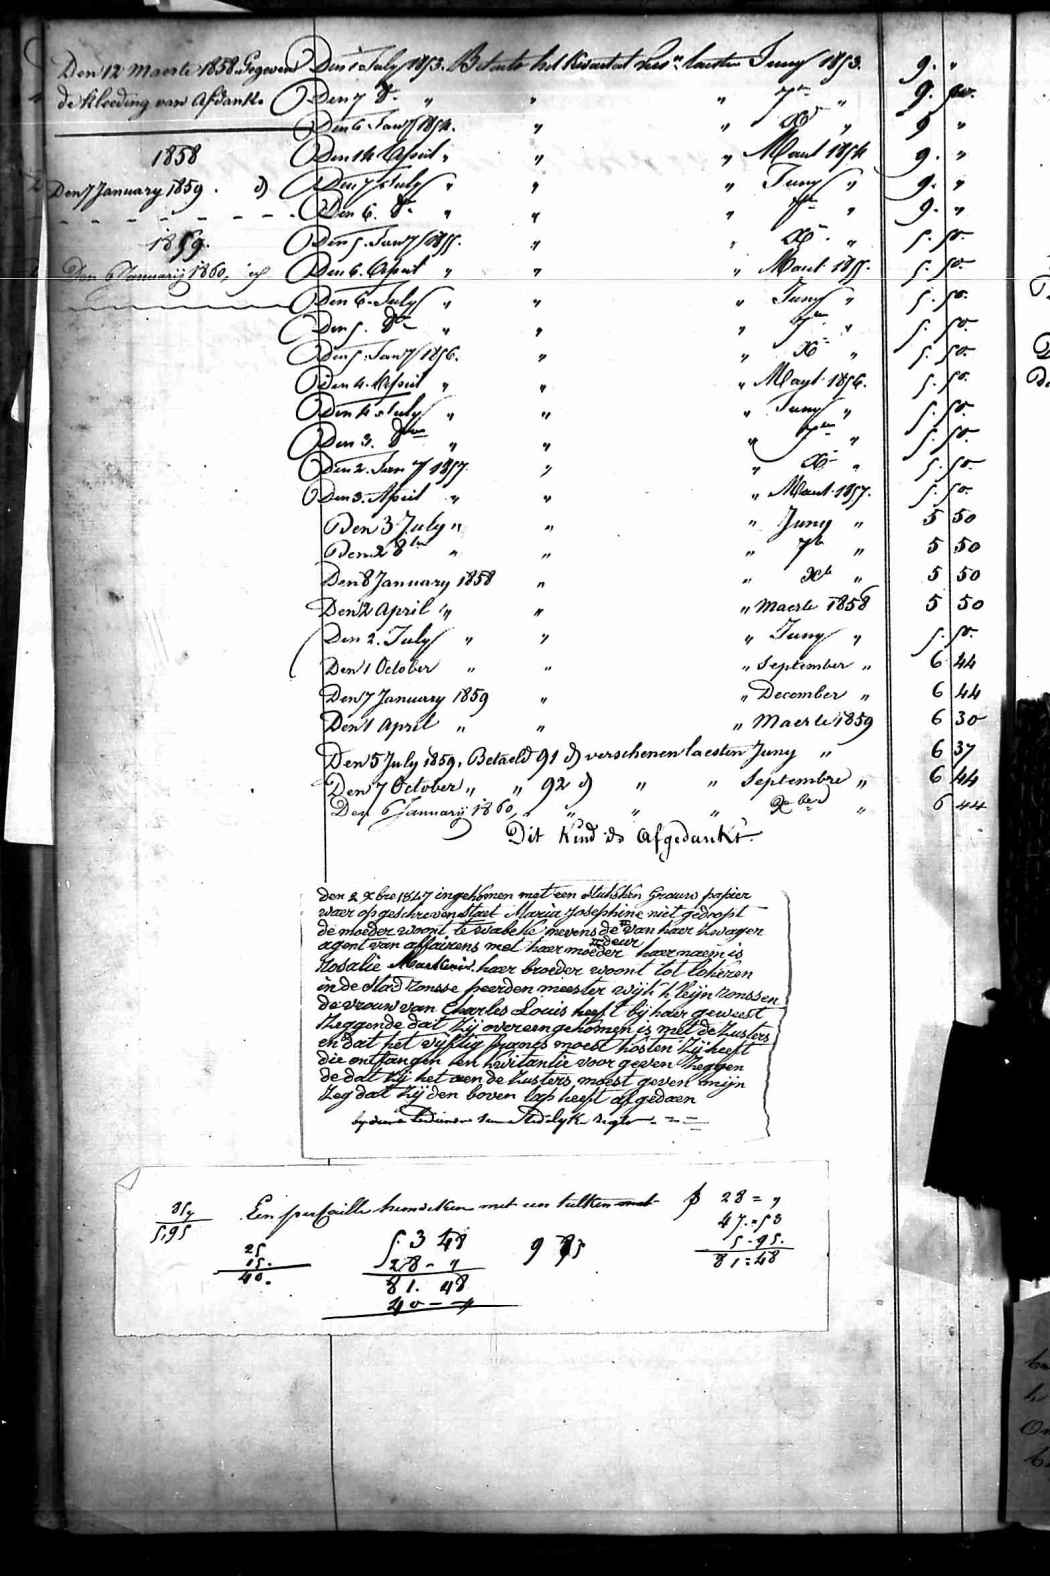 Den 12 Maerte 1858 Gegeven
de kleeding van Afdank.
1858
Den 7 January 1859.
1859.
Den 6 Januarij 1860,
Den 1 July 1853. Betaelt het Kwartael laesten Juny 1853. 9. "
Den 7 8re " " " 7re " 9. 50.
Den 6 Janry 1854. " " Xre " 9 "
Den 14 April " " " Maart 1854 9. "
Den 7 July " " " Juny " 9. "
Den 6. 8re " " " 7re " 9. "
Den 5. Janry 1855. " " Xre " 5. 50.
Den 6. April " " " Maart 1855. 5. 50.
Den 6. July " " " Juny " 5. 50.
Den 5. 8re " " " 7re " 5. 50.
Den 5. Janry 1856. " " Xre " 5. 50.
Den 4. April " " " Maart 1856. 5. 50.
Den 4 July " " " Juny " 5. 50.
Den 3. 8bre " " " 7re " 5. 50.
Den 2. Janry 1857. " " Xre " 5. 50.
Den 3. April " " " Maart 1857. 5. 50.
Den 3 July " " " Juny " 5 50
Den 2 8bre " " " 7b " 5 50
Den 8 January 1858 " " Xb " 5 50
Den 2 April " " " Maerte 1858 5 50
Den 2. July " " " Juny " 5. 50.
Den 1 October " " " September " 6 44
Den 7 January 1859 " " December " 6 44
Den 1 April " " " Maerte 1859 6 30
Den 5 July 1859, Betaeld 91 d) verschenen laesten Juny " 6 37
Den 7 October " " 92 d) " " Septembre " 6 44
Den 6 Januarij 1860, " " " Xber " 6 44
Dit Kind is Afgedankt.
den 2 Xbre 1847 ingekomen met een stuksken Grauw papier
waer op geschreven staet Maria Josephine niet gedoopt
de moeder woont te wabeke nevens de deur van haer zwager
agent van affairens met haer moeder haer naem is
Rosalie haer broeder woont tot lokeren
in de stad Ronsse peerden meester wijk kleijn ronssen
de vrouw van Charles Louis heeft bij haer geweest
Zeggende dat zij overeengekomen is met de Zusters
en dat het vijftig frangs moest kosten Zij heeft
die ontfangen ten kwitantie voor geven Zeggen
de dat zij het aen de Zusters moest geven mijn
Zeg dat zij den boven lap heeft afgedaen
5,95
25
15.
40.
Een hemdeken met een tulken
53 48
28 - "
81. 48
40 - "
9 95
28 = "
47. = 53
5 - 95.
81 = 48